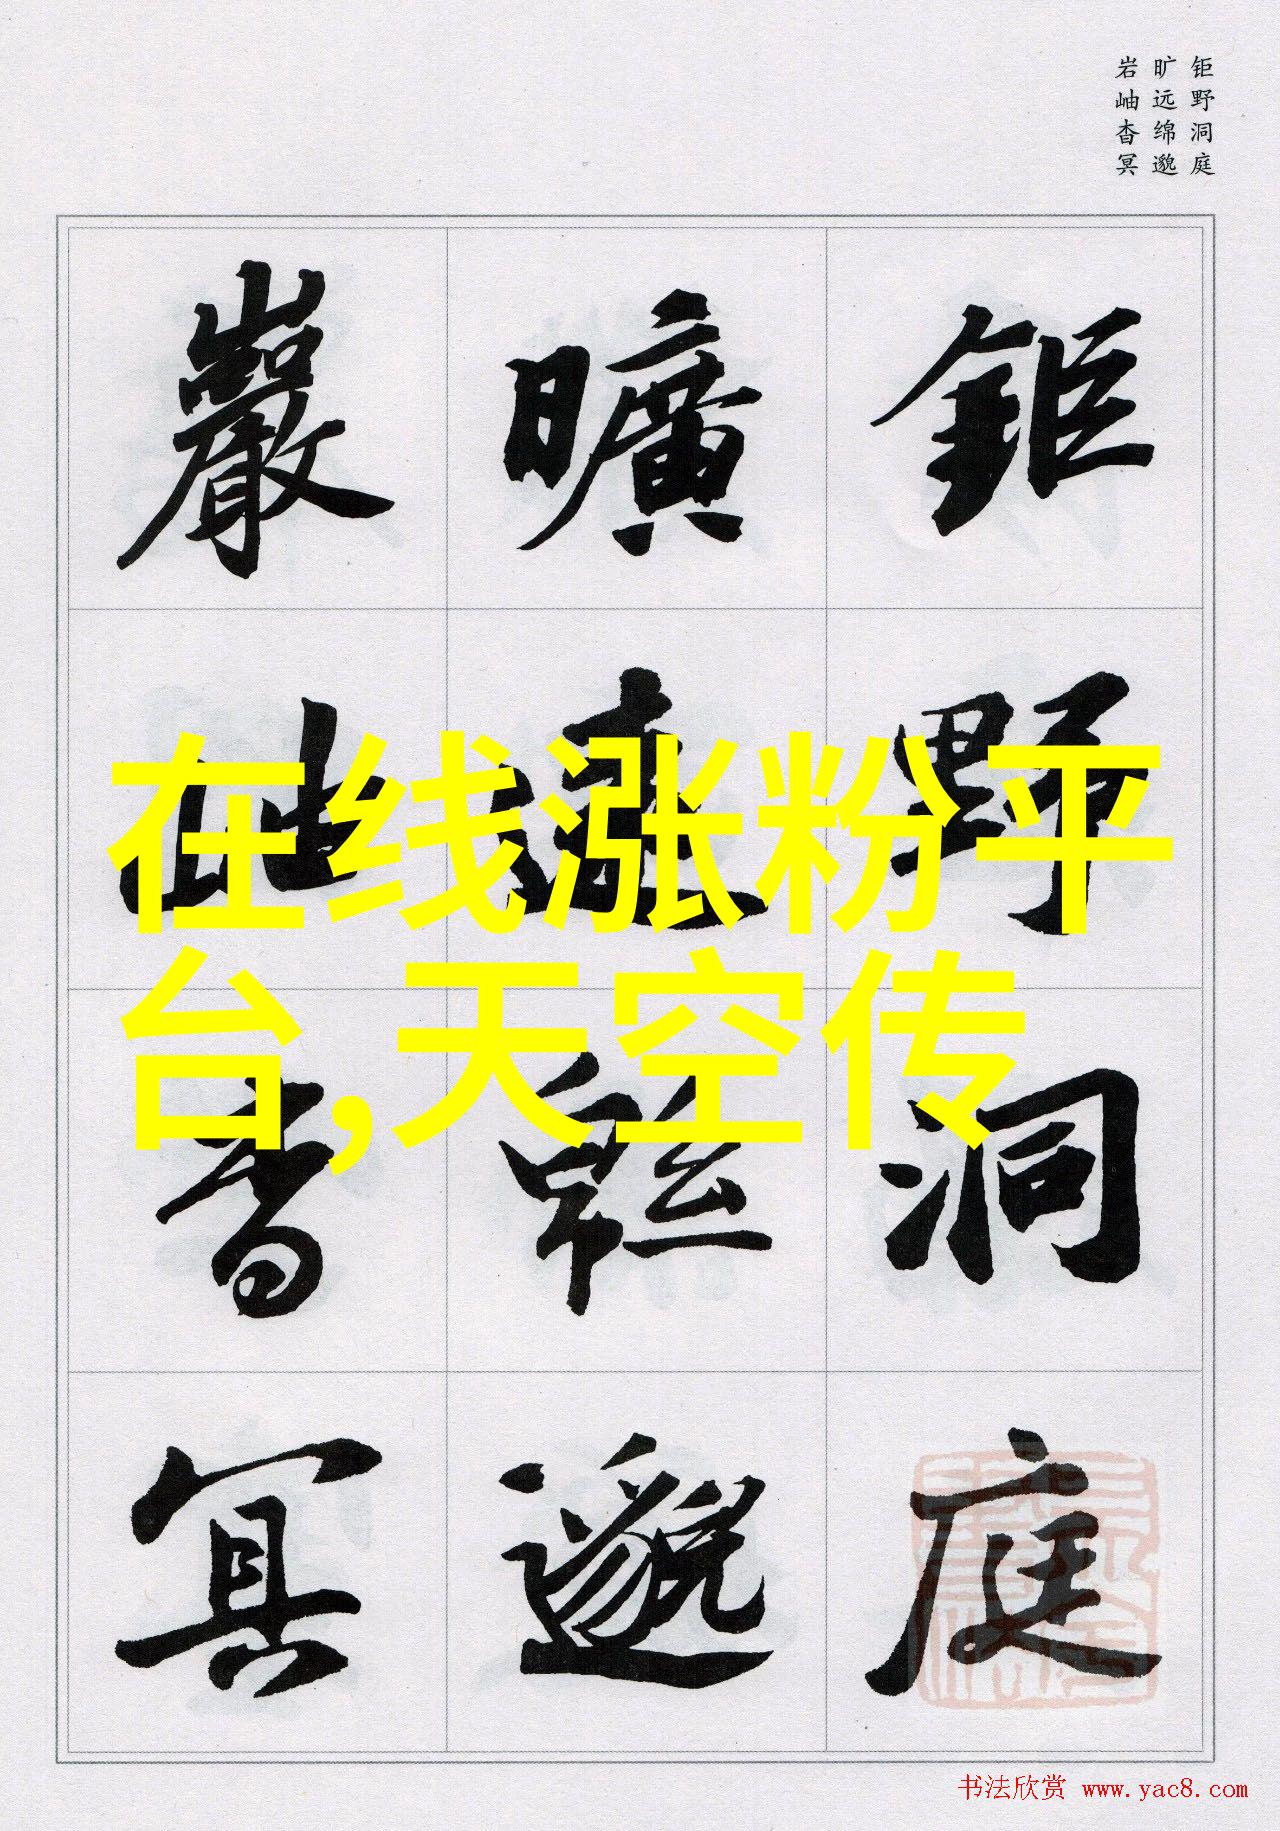 钜野洞庭
旷远绵邈
岩岫杳冥
鉅野洞庭
曠遠緜邈
巖岫杳冥
在线涨粉平
台,天空传
书法欣赏 www.yac8.com